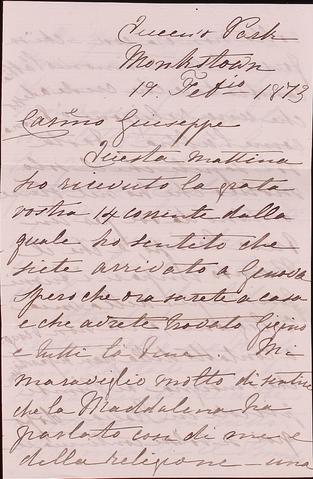 Queens Park
Monkstown
19. Febio 1873
Carmo Giuseppe
Questa mattina
ho ricevuto la grata
vostra 14 corrente dalla
quale ho sentito che
siete arrivato a Genova
spero che ora sarete a casa
e che avrete trovato Gigino
e tutti la bene. Mi
maraviglio molto di sentire
che la Maddalena ha
parlato così di me e
della religione – una